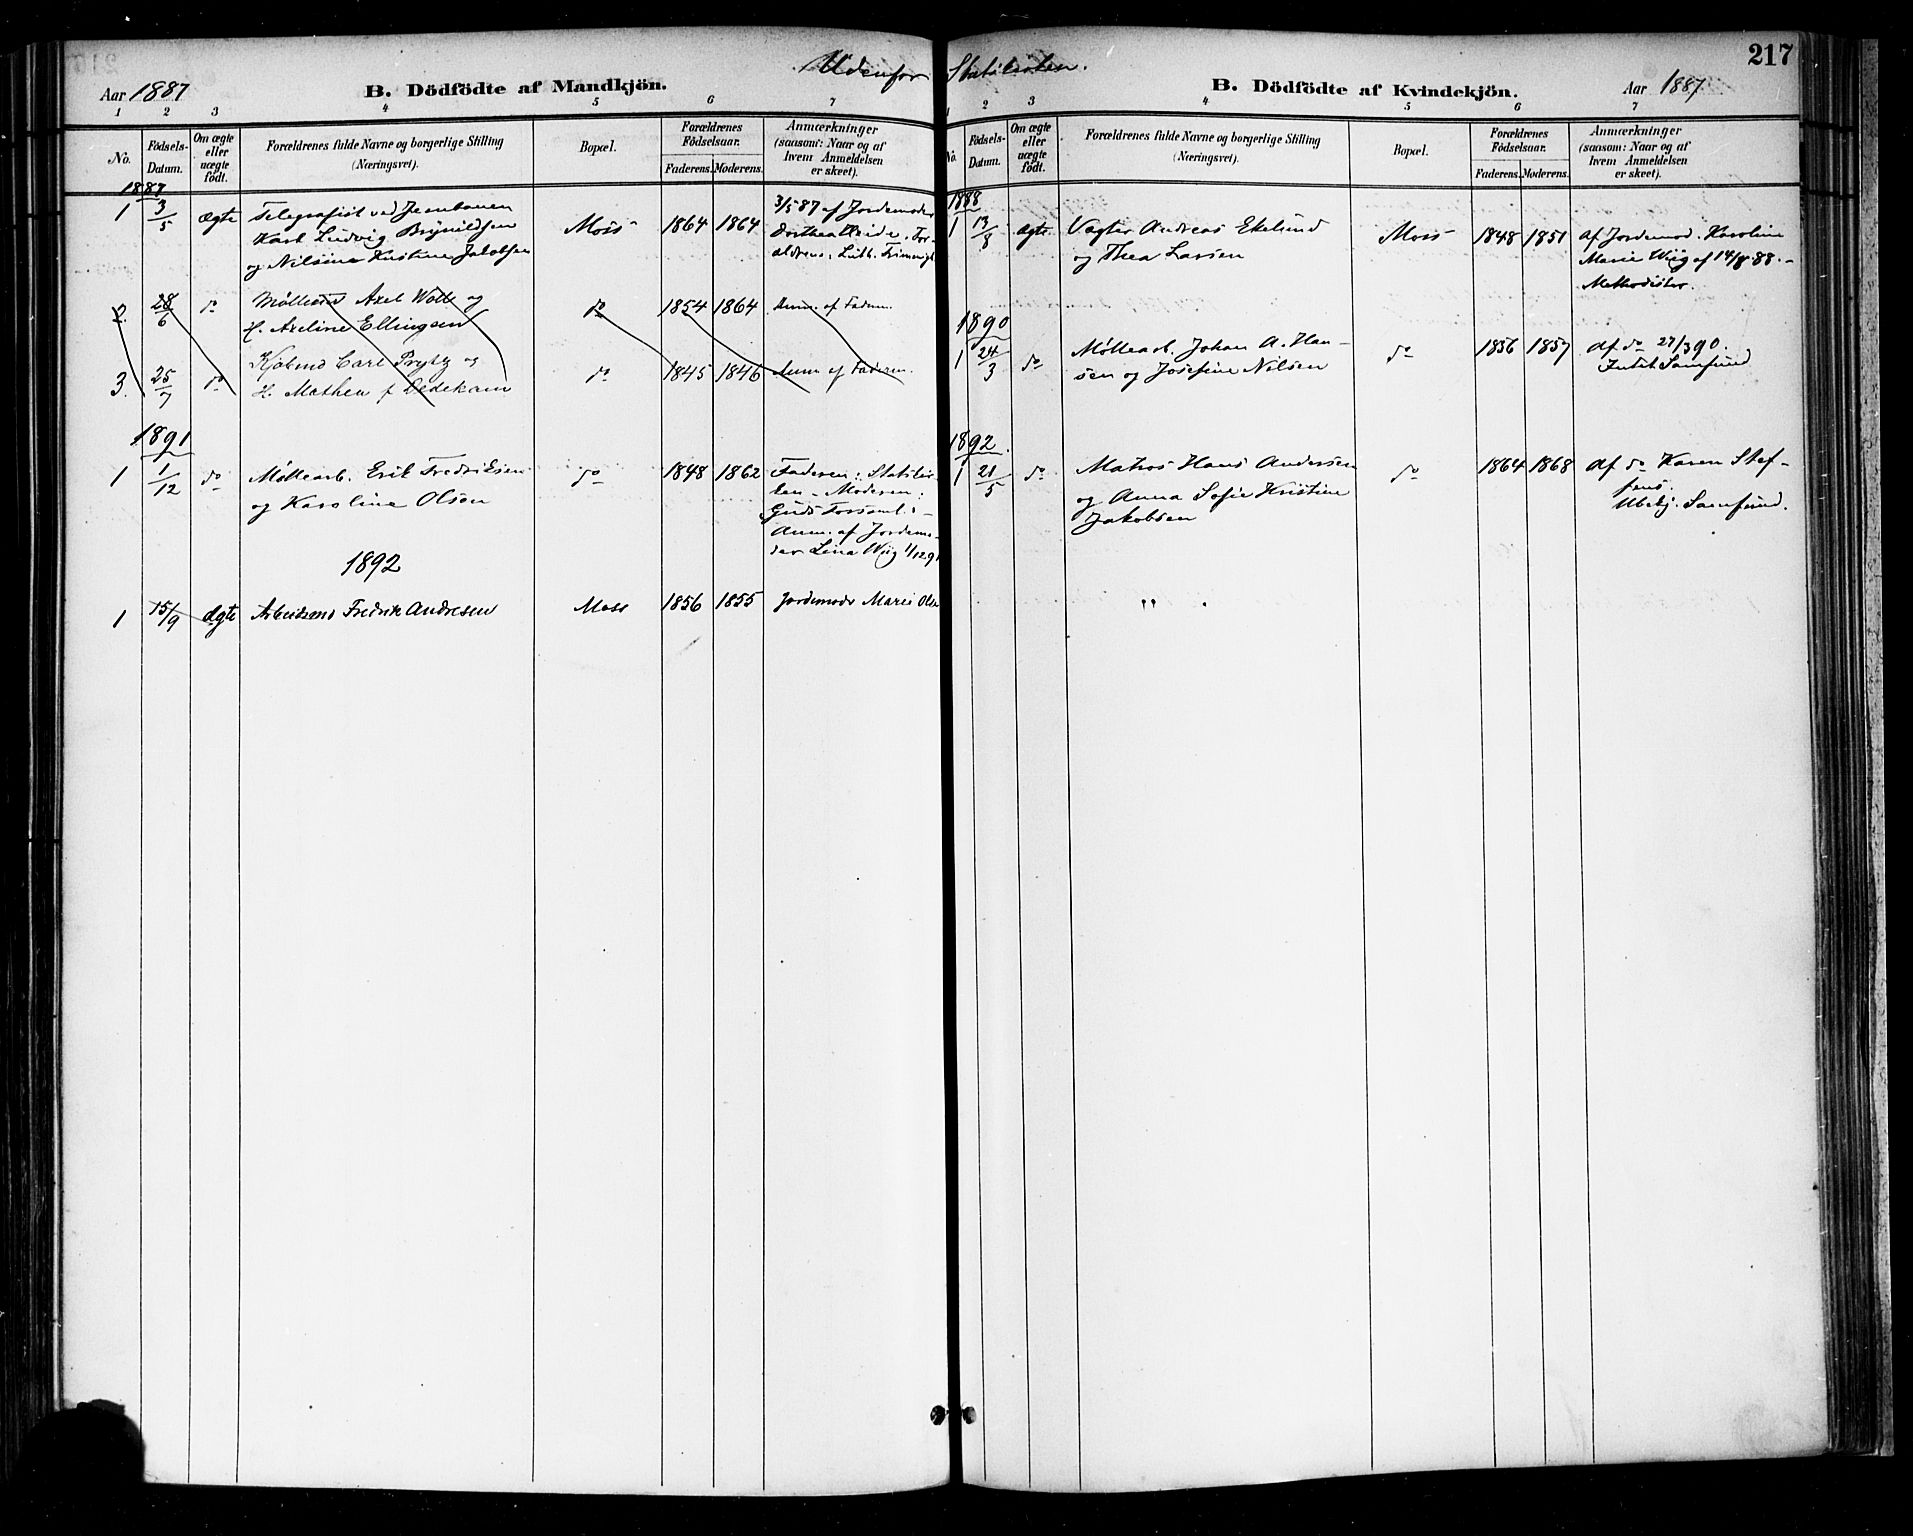 Udenfor Statskirken.
217
Aar 1887
B. Dödfödte af Mandkjön.
1 2 3 4 5 6 7
No.
Födsels-Datum.
Om ægte eller uægte födt.
Forældrenes fulde Navne og borgerlige Stilling
(Næringsvei).
Bopæl.
Forældrenes Födselsaar.
Faderens. Moderens.
Anmærkninger
(saasom: Naar og af
hvem Anmeldelsen
er skeet).
1887
1 3/5 ægte Telegrafist ved Jernbanen Moss 1864 1864 3/5 87 af Jordemoder
Karl Ludvig Brynildsen Dorthea
og Nilsine Kristine Jakobsen Luth. Frimenigh
2. 28/6 do Axel Wolle og do 1854 1864 Anm. af Faderen.
H. Axeline Ellingsen
3. 25/7 do Kjøbmd Carl Prytz og do 1845 1846 Anm af Faderen.
H. Mathea f Dedekam
1891
1 1/12 do Møllearb. Erik Fredriksen do 1848 1862 Faderen: Statskir-
og Karoline Olsen ken - Moderen:
Guds Forsaml: -
Anm. af Jordemo-
der Lina Wiig 1/12 91
1892
1 15/9 ægte Arbeidsmd Fredrik Andresen Moss 1856 1855 Jordemodr Marie Olse
B. Dödfödte af Kvindekjön.
Aar 1887
1 2 3 4 5 6 7
No.
Födsels-Datum.
Om ægte eller uægte födt.
Forældrenes fulde Navne og borgerlige Stilling
(Næringsvei).
Bopæl.
Forældrenes Födselsaar.
Faderens. Moderens.
Anmærkninger
(saasom: Naar og af
hvem Anmeldelsen
er skeet).
1888
1 13/8 ægte Vagter Andreas Ekelund Moss 1848 1851 af Jordemod. Karoline
og Thea Larsen Marie Wiig af 14/8 88. -
Methodister.
1890
1 24/3 do Møllearb. Johan A. Han- do 1856 1857 af do 27/3 90.
sen og Josefine Nilsen Intet Samfund
1892.
1 21/5 do Matros Hans Andersen do 1864 1868 af do Karen Stef-
og Anna Sofie Kristine fens.
Jakobsen Ubekj. Samfund.
" .